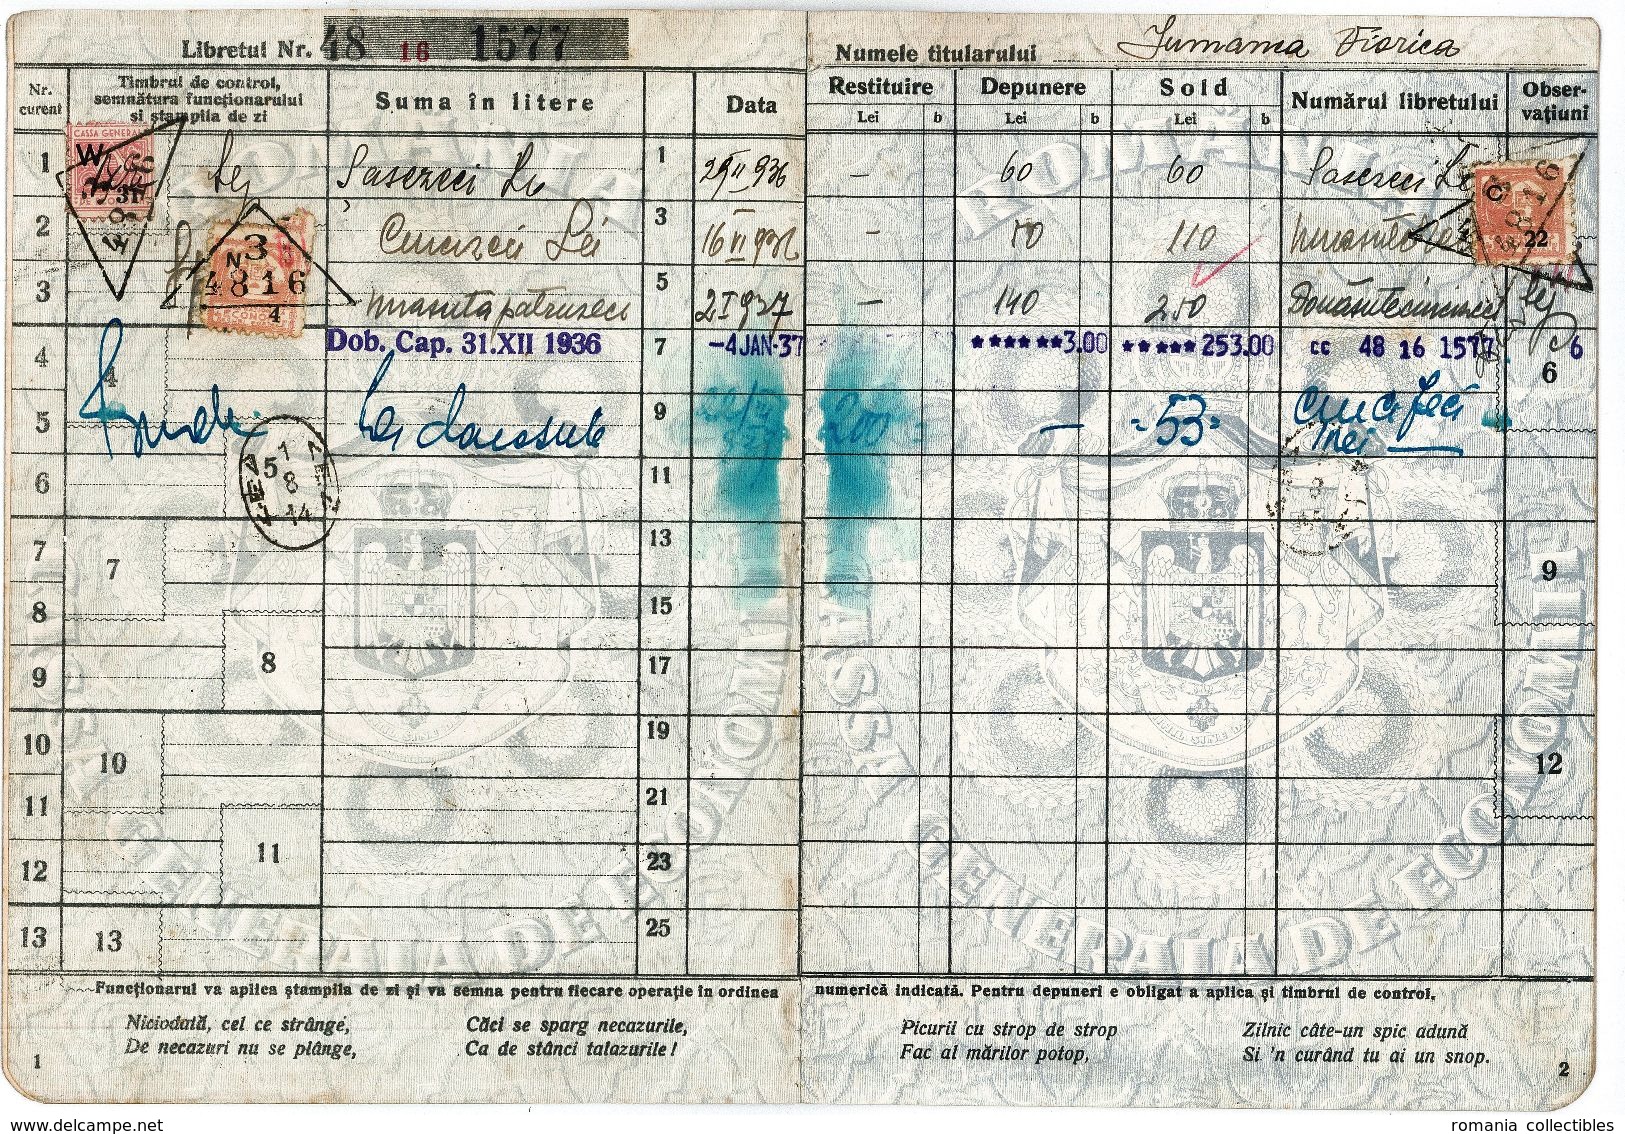 Libretul Nr. 48 16 1577
Numele titularului Viorica
Nr. curent
Timbrul de control, semnătura funcționarului și ștampila de zi
Suma în litere
Data
Restituire
Lei b
Depunere
Lei b
Sold
Lei b
Numărul libretului
Obser-vațiuni
1 Lej Șasezeci Lei 1 29 II 936 — 60 60 Sasezeci Lei
2 Cincizeci Lei 3 16 VI 936 — 50 110
3 unasutapatruzeci 5 2 I 937 — 140 250 Douăsutecincizeci Lej
4 Dob. Cap. 31.XII 1936 7 -4 JAN·37 ******3.00 *****253.00 cc 48 16 1577 6
5 Lei douasute 9 200 = — =53=
6 11
7 13
8 15
9 17
10 19
11 21
12 23
13 25
4
7
8
10
11
13
6
9
12
CASSA GENERALĂ
W
31
3
N
4816
4
C
22
4816
5 1
8
14
ROMÂNIA
CASSA GENERALA DE ECONOMII
ROMÂNIA
CASSA GENERALA DE ECONOMII
Funcționarul va aplica ștampila de zi și va semna pentru fiecare operație în ordinea numerică indicată. Pentru depuneri e obligat a aplica și timbrul de control.
Niciodată, cel ce strânge,
De necazuri nu se plânge,
Căci se sparg necazurile,
Ca de stânci talazurile!
Picurii cu strop de strop
Fac al mărilor potop,
Zilnic câte-un spic adună
Si 'n curând tu ai un snop.
1
2
www.delcampe.net
romania collectibles